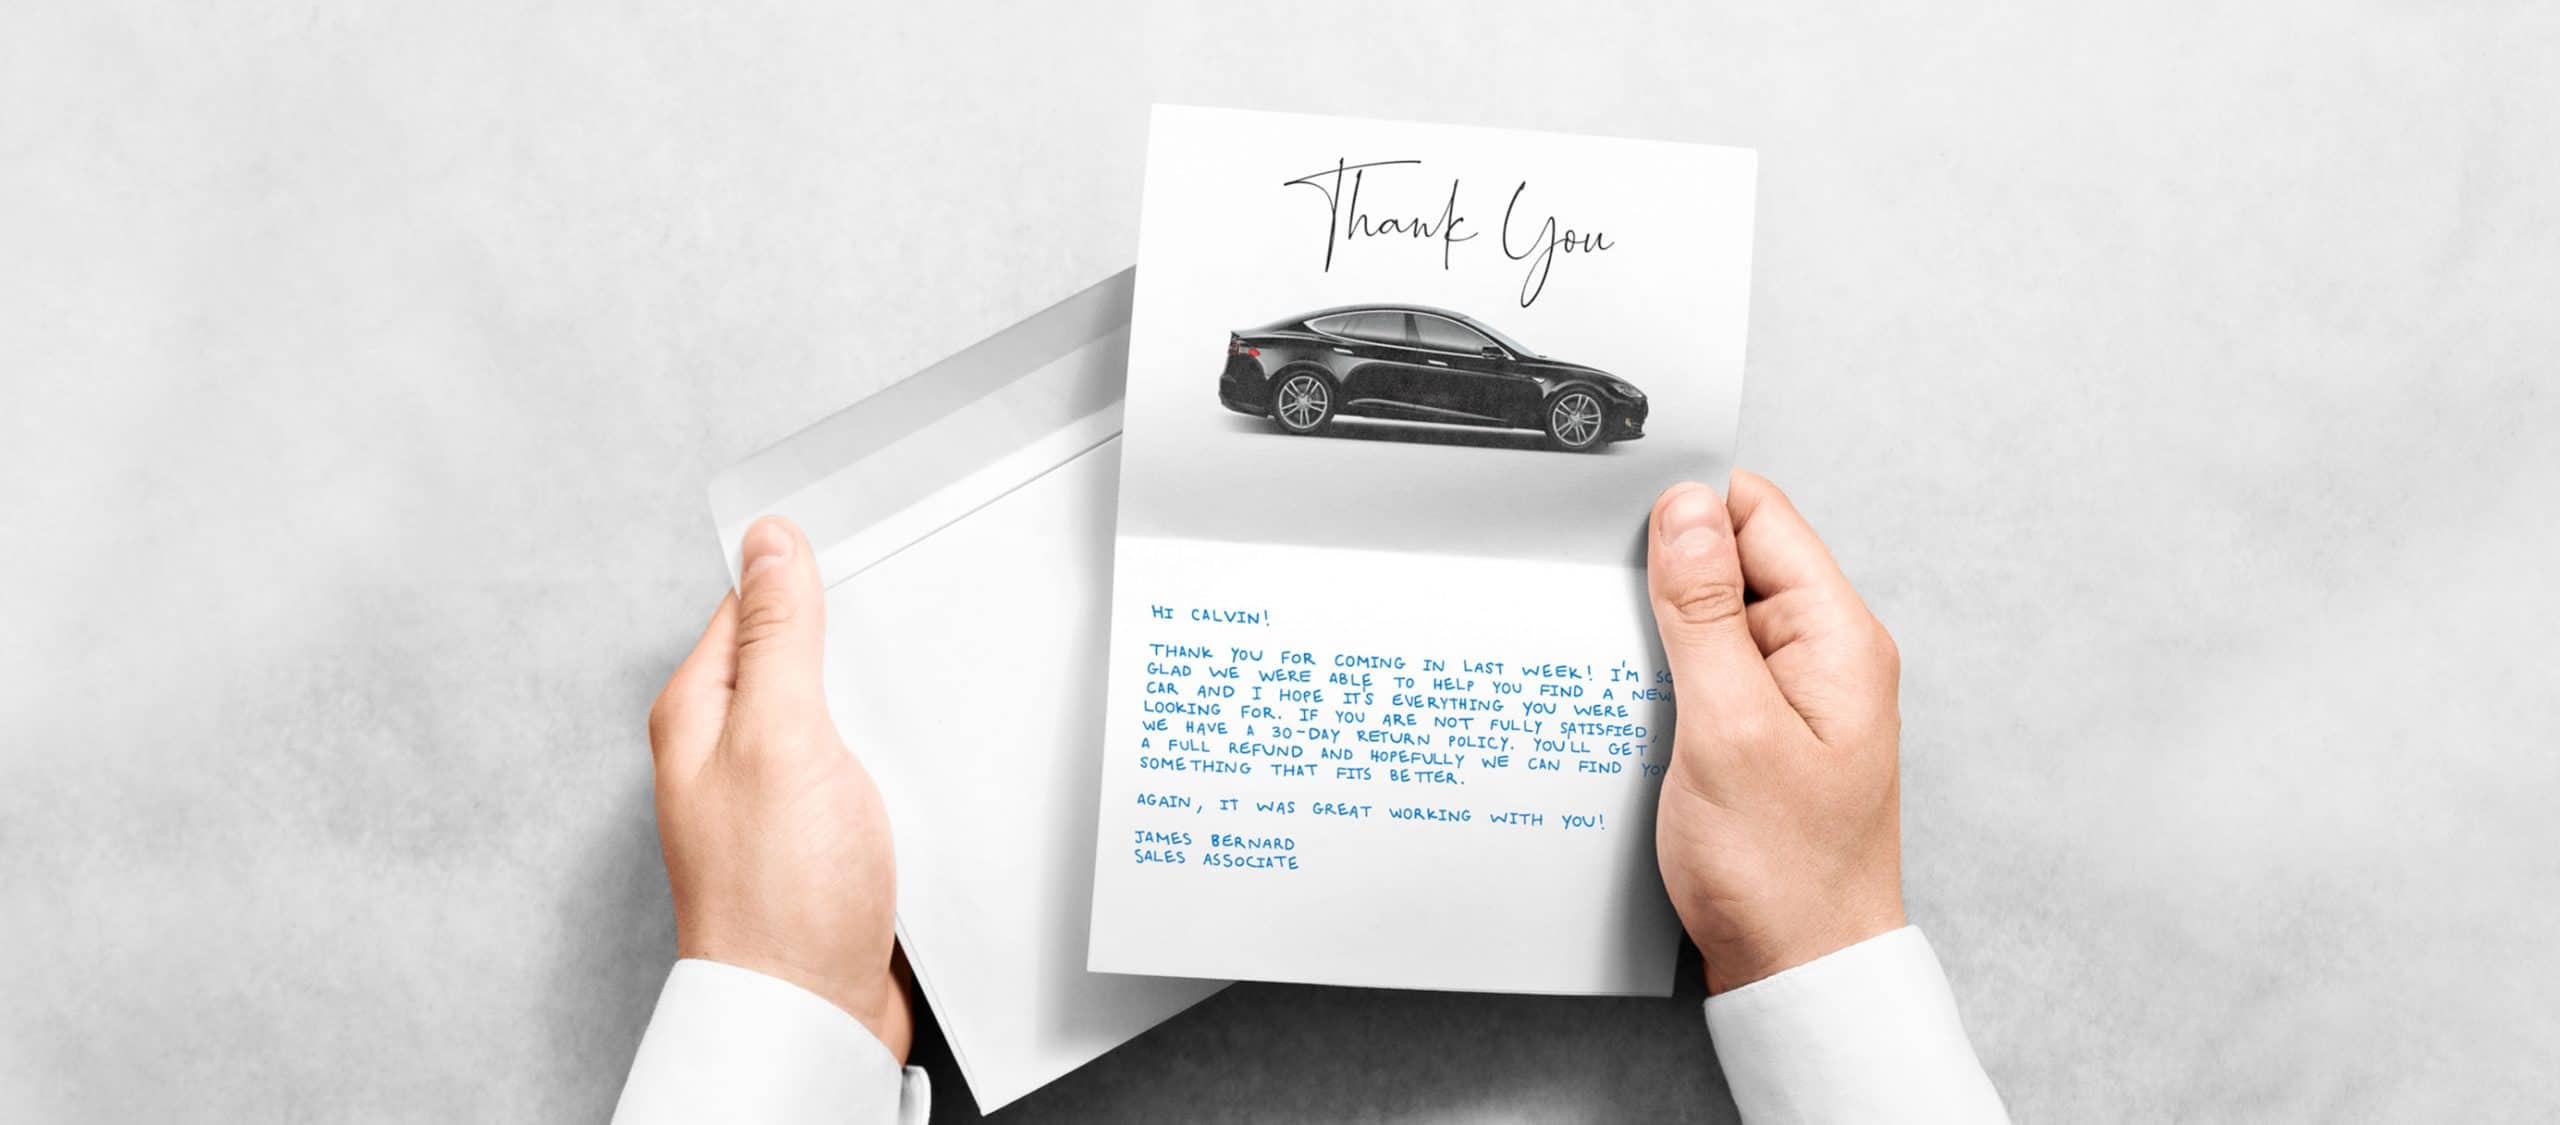 Thank You
HI CALVIN!
THANK YOU FOR COMING IN LAST WEEK! I'M
GLAD WE WERE ABLE TO HELP YOU FIND A NEW
CAR AND I HOPE IT'S EVERYTHING YOU WERE
LOOKING FOR. IF YOU ARE NOT FULLY SATISFIED,
WE HAVE A 30-DAY RETURN POLICY. YOU'LL GET
A FULL REFUND AND HOPEFULLY WE CAN FIND
SOMETHING THAT FITS BETTER.
AGAIN, IT WAS GREAT WORKING WITH YOU!
JAMES BERNARD
SALES ASSOCIATE